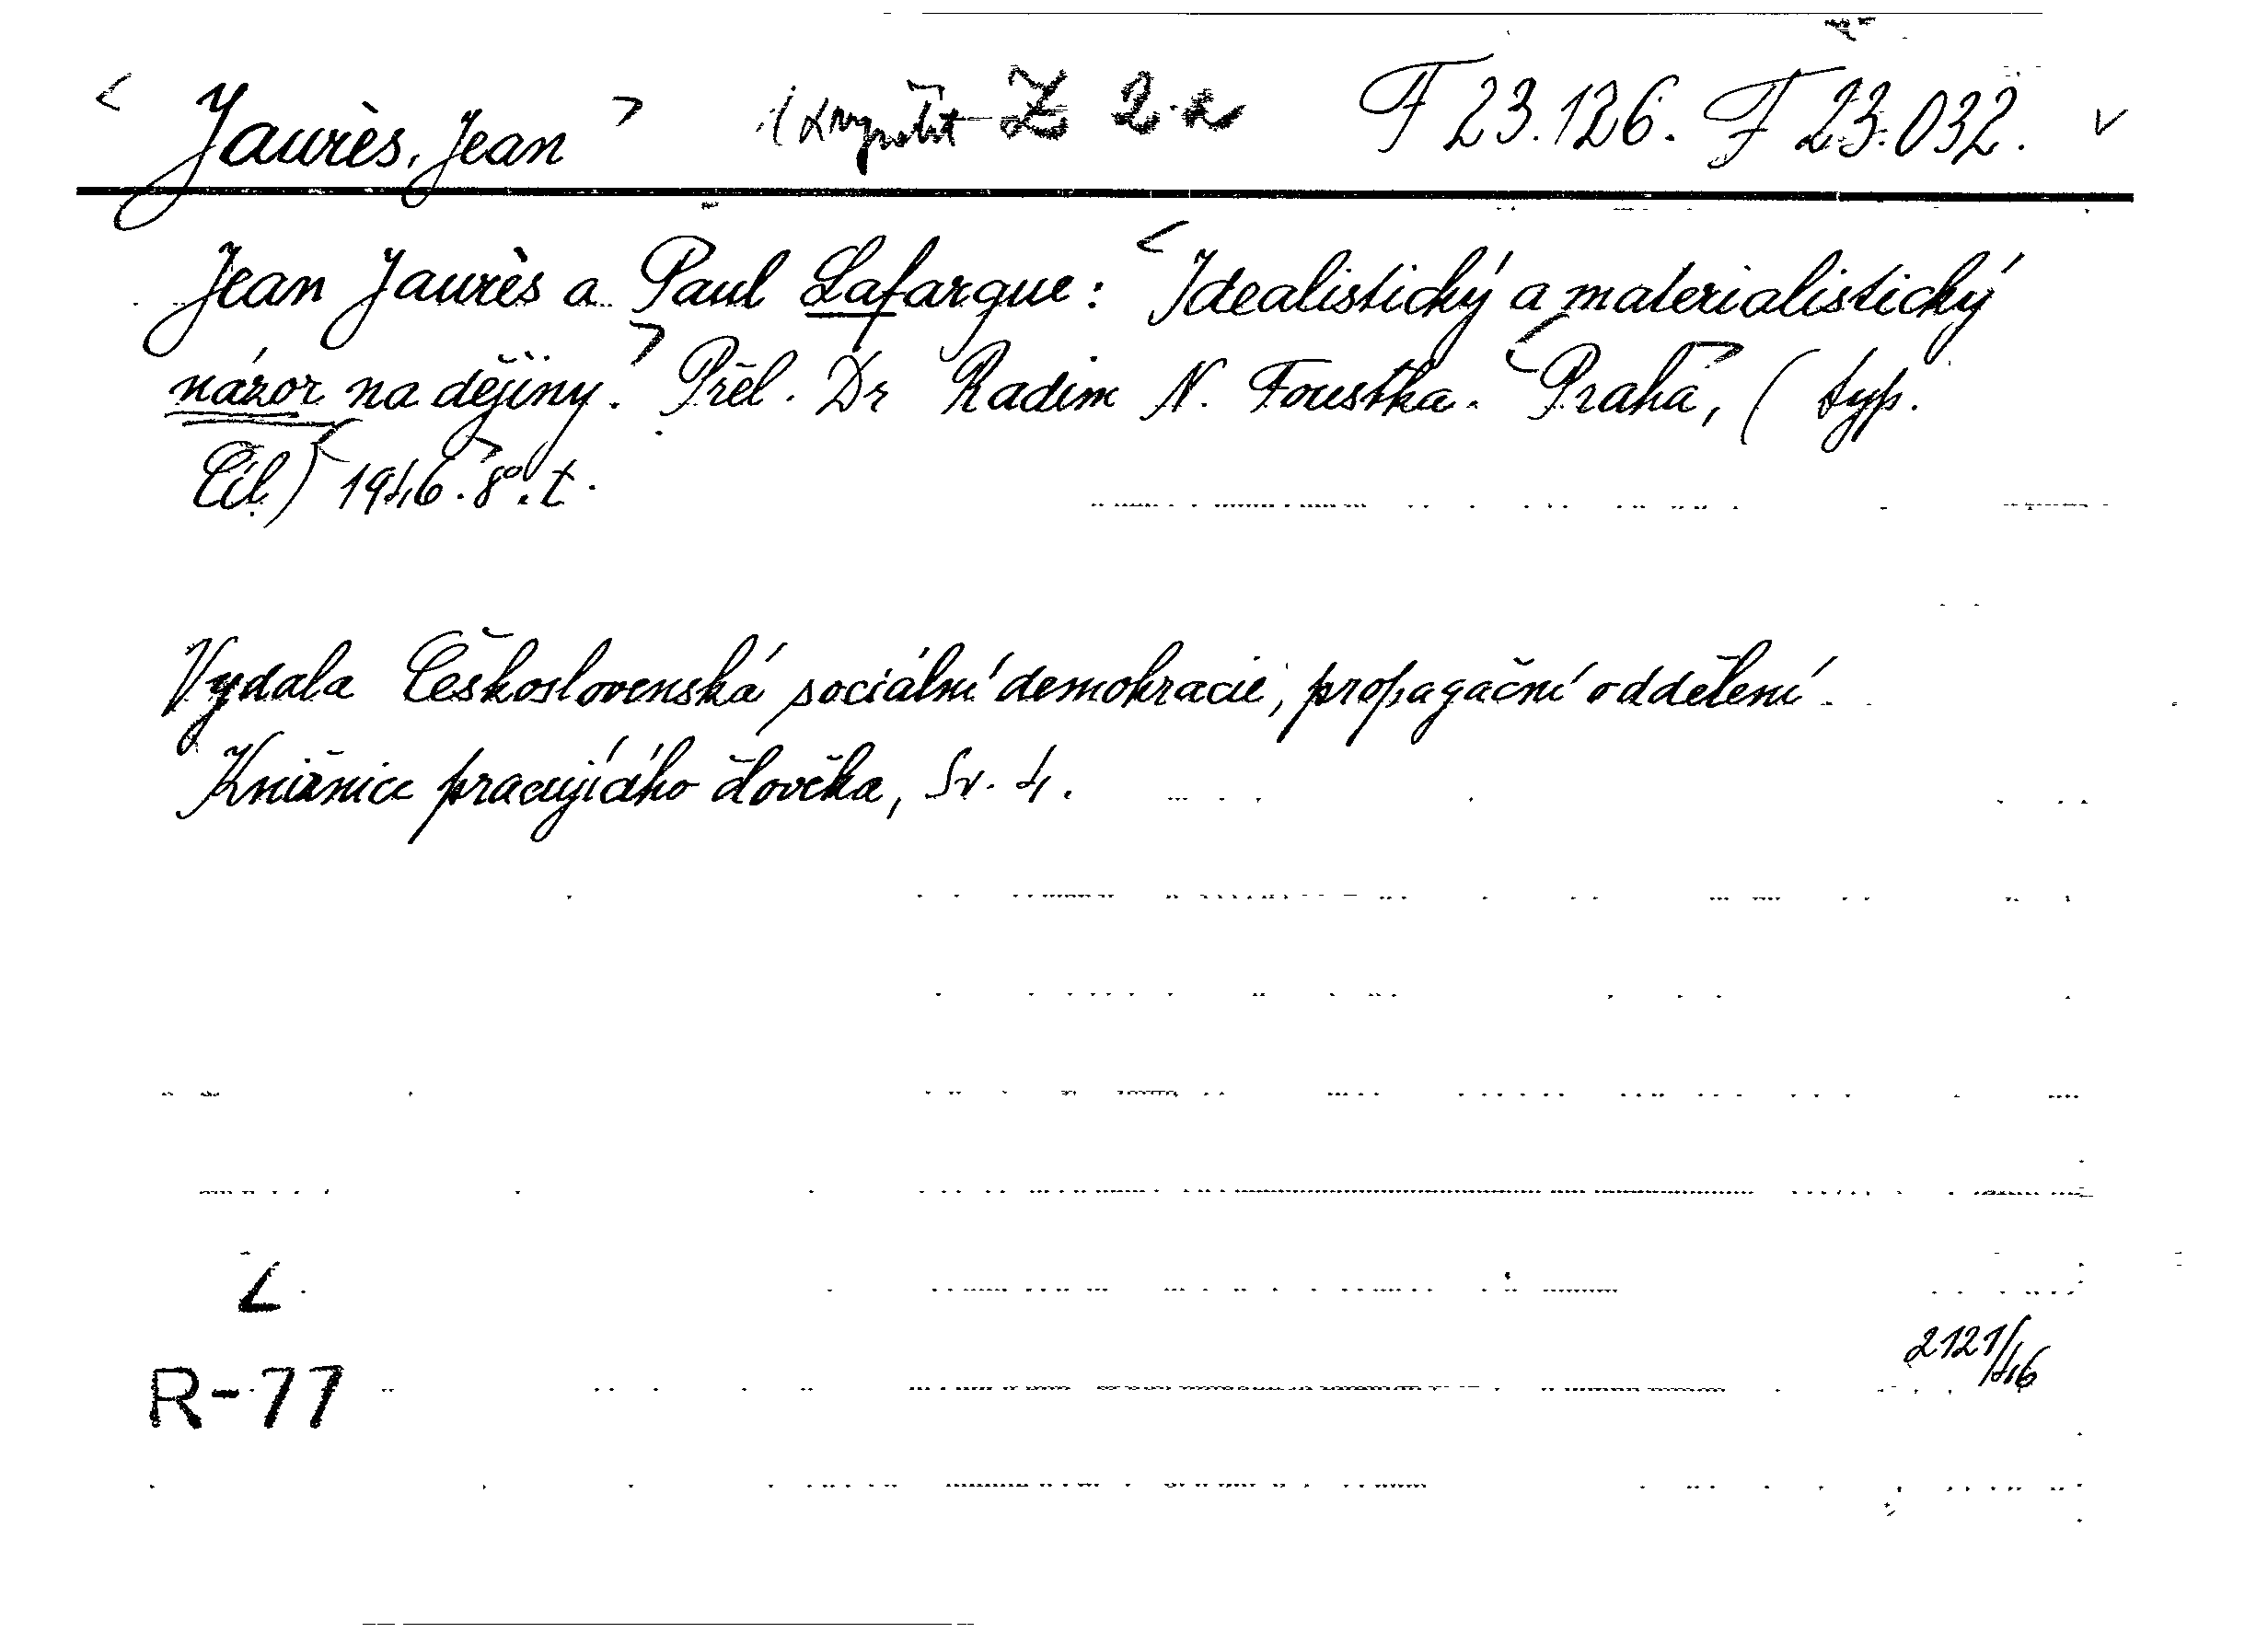 < Jaurès, Jean > F 23.126. F 23.032. v
Jean Jaurès a Paul Lafargue: <Idealistický a materialistický
názor na dějiny.> Přel. Dr Radim N. Foustka. <Praha,> (typ.
Cíl) <1946.> 8°. t.
Vydala Československá sociální demokracie, propagační oddělení.
Knižnice pracujícího člověka, Sv. 4.
L
R-77
2121/46